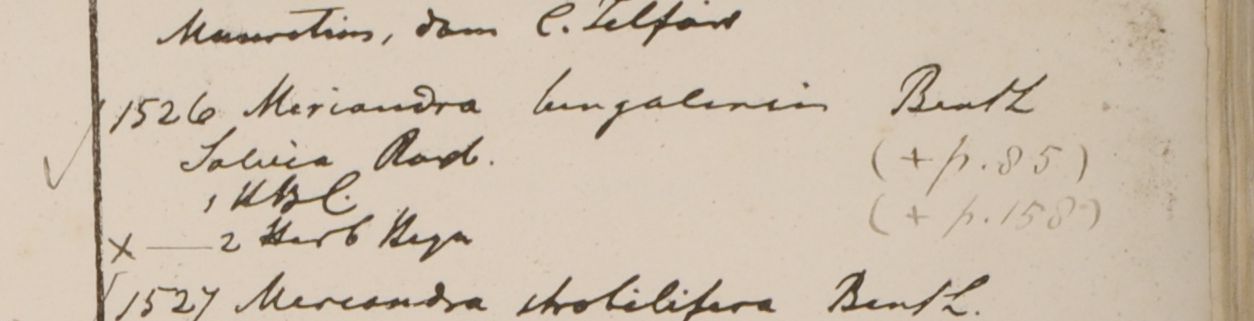 Mauritius, dom C. Telfair
1526 Meriandra bengalensis Benth
Salvia Roxb. (+ p. 85)
1 HBC. (+ p. 158)
x — 2 Herb Heyn
1527 Meriandra strobilifera Benth.